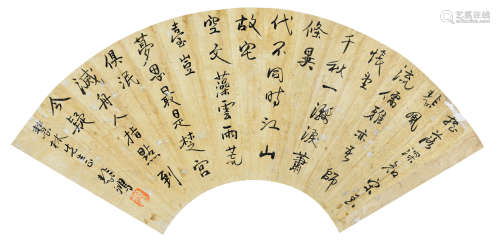 搖落深知宋玉
悲風
流儒雅亦吾師
悵望
千秋一灑淚蕭
條異
代不同時江山
故宅
空文藻雲雨荒
臺豈
夢思最是楚宮
俱泯
滅舟人指點到
今疑